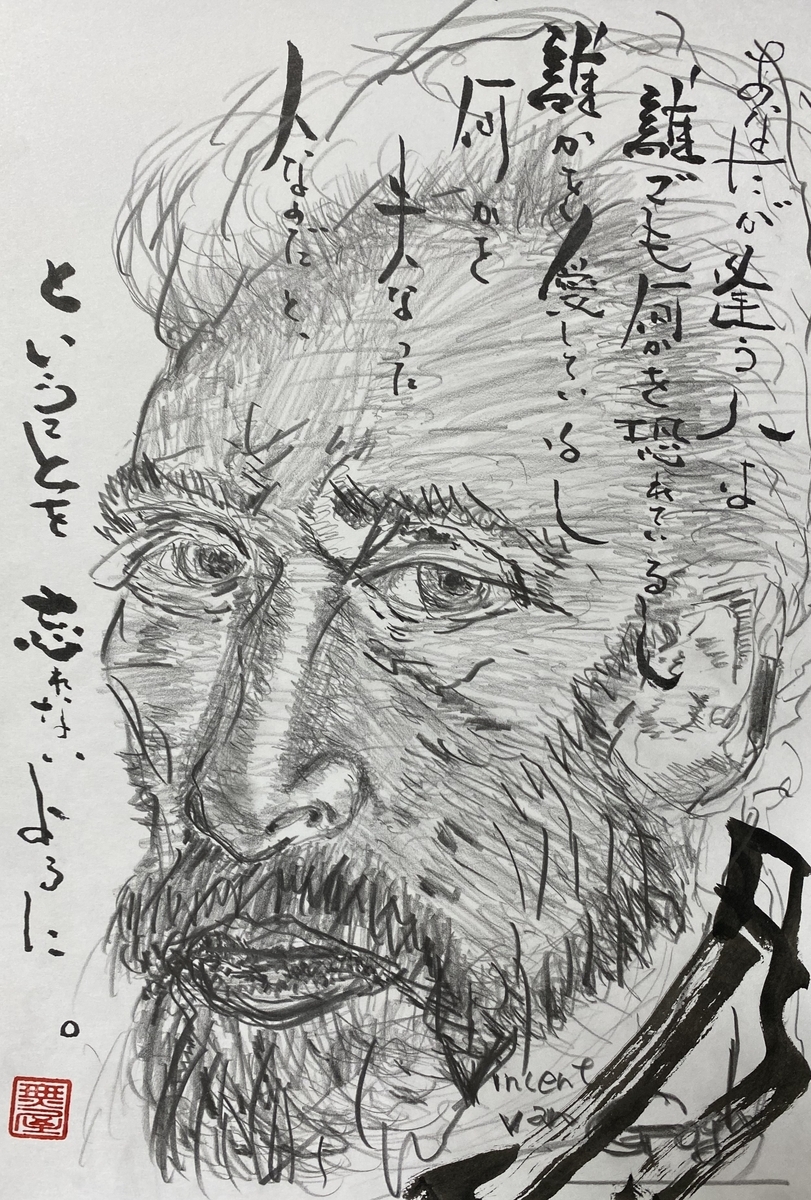 あなたが逢う人は
誰でも何かを恐れているし
誰かを愛しているし
何かを
失なった
人なのだと、
ということを 忘れないように。
Vincent
van Gogh